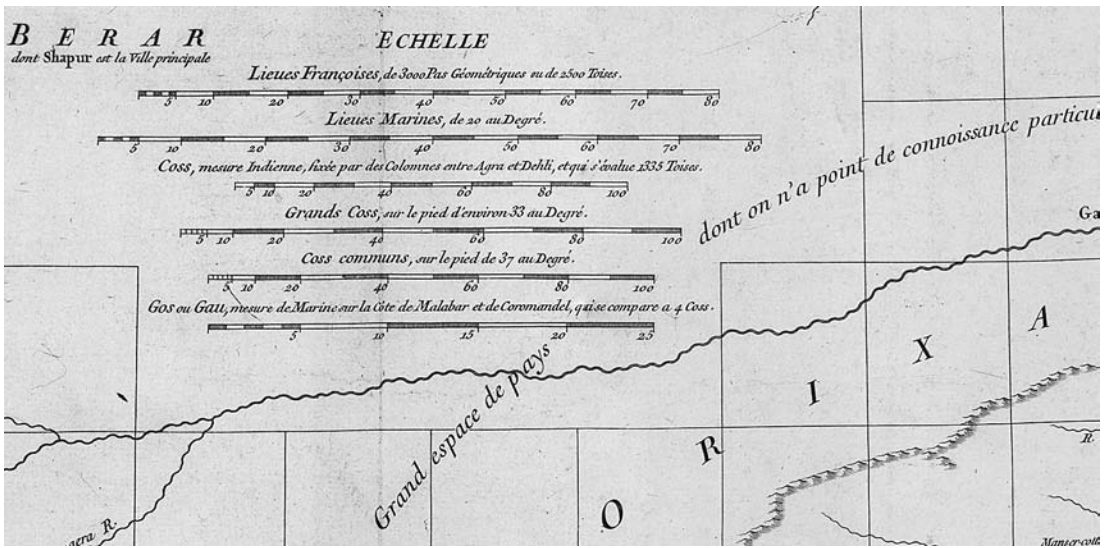 BERAR
dont Shapur est la Ville principale
ECHELLE
Lieues Françoises, de 3000 Pas Géométriques ou de 2500 Toises.
5 10 20 30 40 50 60 70 80
Lieues Marines, de 20 au Degré.
5 10 20 30 40 50 60 70 80
Coss, mesure Indienne, fixée par des Colomnes entre Agra et Dehli, et qui s'évalue 1335 Toises.
5 10 20 40 60 80 100
Grands Coss, sur le pied d'environ 33 au Degré.
5 10 20 40 60 80 100
Coss communs, sur le pied de 37 au Degré.
5 10 20 40 60 80 100
Gos ou Gau, mesure de Marine sur la Côte de Malabar et de Coromandel, qui se compare a 4 Coss.
5 10 15 20 25
Grand espace de pays
dont on n'a point de connoissance particu
Ga
ORIXA
R.
aera R.
Manser-cott